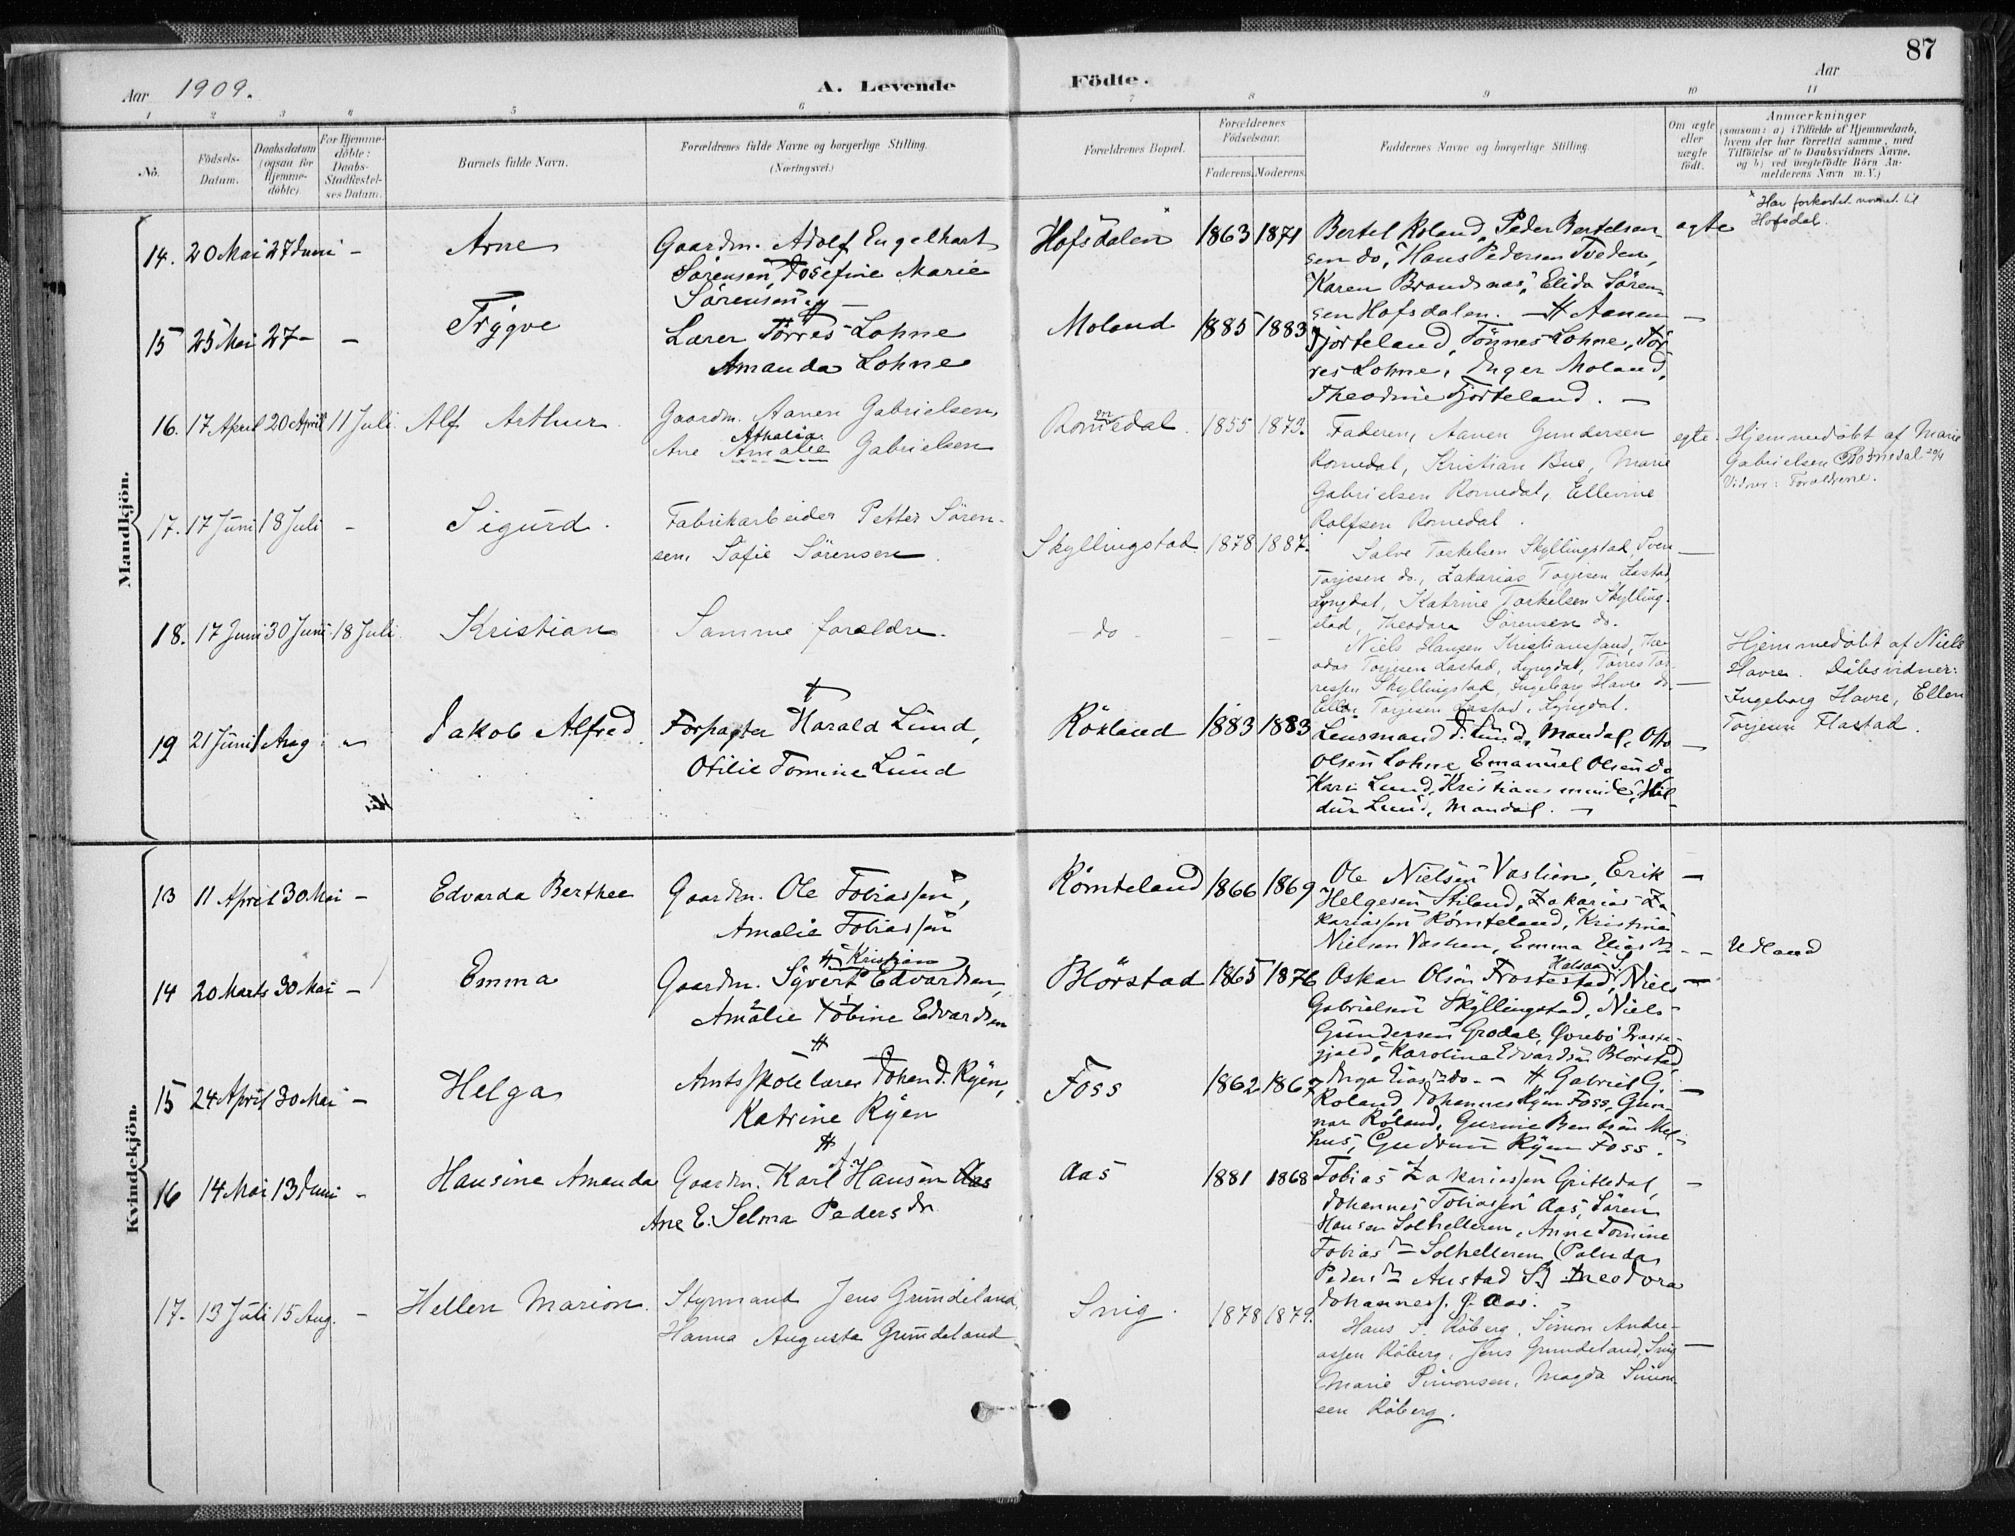 87
Aar 1909.
A. Levende Födte.
Aar
1 2 3 4 5 6 7 8 9 10 11
No.
Födsels-Datum.
Daabsdatum (ogsaa for Hjemme-döbte).
For Hjemme-döbte: Daabs-Stadfæstel-ses Datum.
Barnets fulde Navn.
Forældrenes fulde Navne og borgerlige Stilling.
(Næringsvei.)
Forældrenes Bopæl.
Forældrenes Födselsaar.
Faderens. Moderens.
Faddernes Navne og borgerlige Stilling.
Om ægte eller uægte födt.
Anmærkninger
(saasom: a) i Tilfælde af Hjemmedaab, hvem der har forrettet samme, med Tilföielse af to Daabsvidners Navne, og b) ved uægtefödte Börn Anmelderens Navn m.V.)
Mandkjön.
14. 20 Mai 27 Juni - Arne
Gaardm. Adolf Engelhart
Sørensen, Josefine Marie
Sørensen
Hofsdalen 1863 1871
Bertel Roland, Peder Bertelsen
sen do, Hans Pedersen Tveden,
Karen Brandsnas, Elida Søren-
sen Hofsdalen.
egte
* Har forkortet navnet til
Hofsdal.
15 25 Mai 27 - - Trygve
Lærer Tørres Lohne
Amanda Lohne
Moland 1885 1883
Aanen
Fjorteland, Tønnes Lohne, Tør-
res Lohne, Inger Moland,
Theodine Fjorteland. -
16. 17 April 20 April 11 Juli Alf Arthur.
Gaardm. Aanen Gabrielsen,
Athalia
Ane Amalie Gabrielsen
Romedal. 1855 1873.
Faderen, Aanen Gundersen
Romedal, Kristian Bue, Marie
Gabrielsen Romedal, Ellevine
Rolfsen Romedal.
egte.
Hjemmedøbt af Marie
Gabrielsen Romedal 20/4
Vidner: Forældrene.
17. 17 Juni 18 Juli - Sigurd.
Fabrikarbeider Petter Søren-
sen, Sofie Sørensen.
Skyllingstad 1878 1887.
Salve Torkelsen Skyllingstad, Sven
Torjesen do., Zakarias Torjesen Lastad,
Lyngdal, Katrine Torkelsen Skylling-
stad, Theodora Sørensen do.
18. 17 Juni 30 Juni 18 Juli. Kristian
Samme forældre.
- do - - -
Niels Hansen Kristianssand, The-
odor Torjesen Lastad, Lyngdal, Tørres Tor-
ressen Skyllingstad, Ingeborg Havre do.
Torjesen Lastad, Lyngdal.
Hjemmedøbt af Niels
Havre. Dåbsvidner:
Ingeborg Havre, Ellen
Torjesen
19 21 Juni 1 Aug. - Jakob Alfred
Forpagter Harald Lund,
Otilie Tomine Lund
Røkland 1883 1883
Lensmand J. Lund, Mandal, Otto
Olsen Lohne, Emanuel Olsen do
Kari Lund, Kristiansminde, Hil-
dur Lund, Mandal. -
Kvindekjön.
13 11 April 30 Mai - Edvarda Berthee
Gaardm. Ole Tobiassen,
Amalie Tobiassen
Rømteland 1866 1869
Ole Nielsen Vaslien, Erik
Helgesen Stiland, Zakarias Za-
kariassen Rømteland, Kristine
Nielsen Vaslien, Emma Elias
Udland
14 20 Marts 30 Mai - Emma
Kristian
Gaardm. Syvert Edvardsen,
Amalie Tobine Edvardsen
Blørstad 1865 1876
Halsaa S.
Oskar Olsen Frostestad, Niels
Gabrielsen Skyllingstad, Niels
Gundersen Grodal, Øvrebø Præste-
gjeld, Karoline Edvardsen Blørstad,
Inga Elias do. -
15 24 April 30 Mai - Helga
Amtsskolelærer Johan J. Ryen,
Katrine Ryen
Foss 1862 1867
Gabriel G.
Roland, Johannes Ryen Foss, Gun-
nar Roland, Gurine Bentsen Mel-
hus, Gudrun Ryen Foss.
16 14 Mai 13 Juni - Hansine Amanda
Gaardm. Karl J. Hansen Aas
Ane E. Selma Pedersdr
Aas 1881 1868
Tobias Zakariassen Gpitledal,
Johannes Tobiassen Aas, Søren
Hansen Solhelleren, Anne Tomine
Tobias Solhelleren (Paluda
Peders Austad S) Theodora
Johanness. Aas.
17. 13 Juli 15 Aug. - Hellen Marion.
Styrmand Jens Grundeland,
Hanna Auguste Grundeland
Snig. 1878 1879.
Hans S. Råberg, Simon Andre-
assen Råberg, Jens Grundeland, Snig
Marie Simonsen, Magda Simon-
sen Råberg.